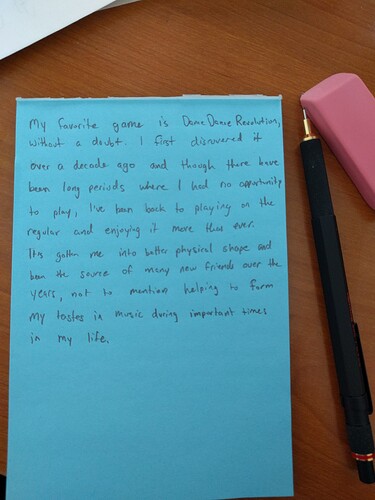 My favorite game is Dance Dance Revolution,
without a doubt. I first discovered it
over a decade ago and though there have
been long periods where I had no opportunity
to play, I've been back to playing on the
regular and enjoying it more than ever.
It's gotten me into better physical shape and
been the source of many new friends over the
years, not to mention helping to form
my tastes in music during important times
in my life.